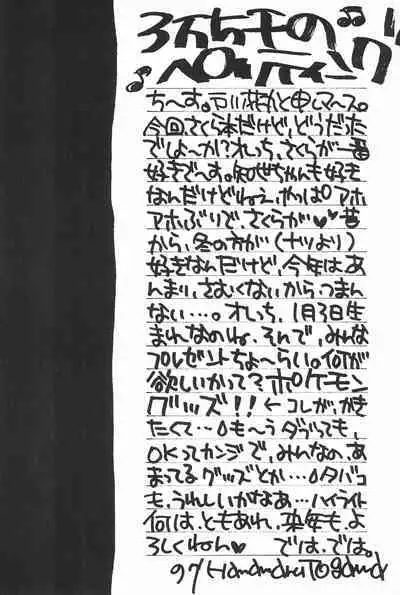 ペロティング
ち〜す。戸川花丸と申しマース。
今回、さくら本だけど、どうだった
でしょーか?オレっち、さくらが一番
好きで〜す。知世ちゃんも好き
なんだけどねぇ、やっぱ°アホ
アホぶりで、さくらが♥♥昔
から、冬の方が(ナツより)
好きなんだけど、今年はあ
んまり、さむくないから、つまん
ない…。オレっち、1月3日生
まれなのね、そんで、みんな
プレゼントちょ〜らい。何が
欲しいかって?ポケーモン
グッズ!!←コレが、かき
たくて…。も〜うダブっても、
OKってカンジで、みんなの、あ
まってるグッズとか…。タバコ
も、うれしいかなあ…ハイライト
何は、ともあれ、来年も、よ
ろしくねん♥ では、では。
97 Hanamaru Togawa